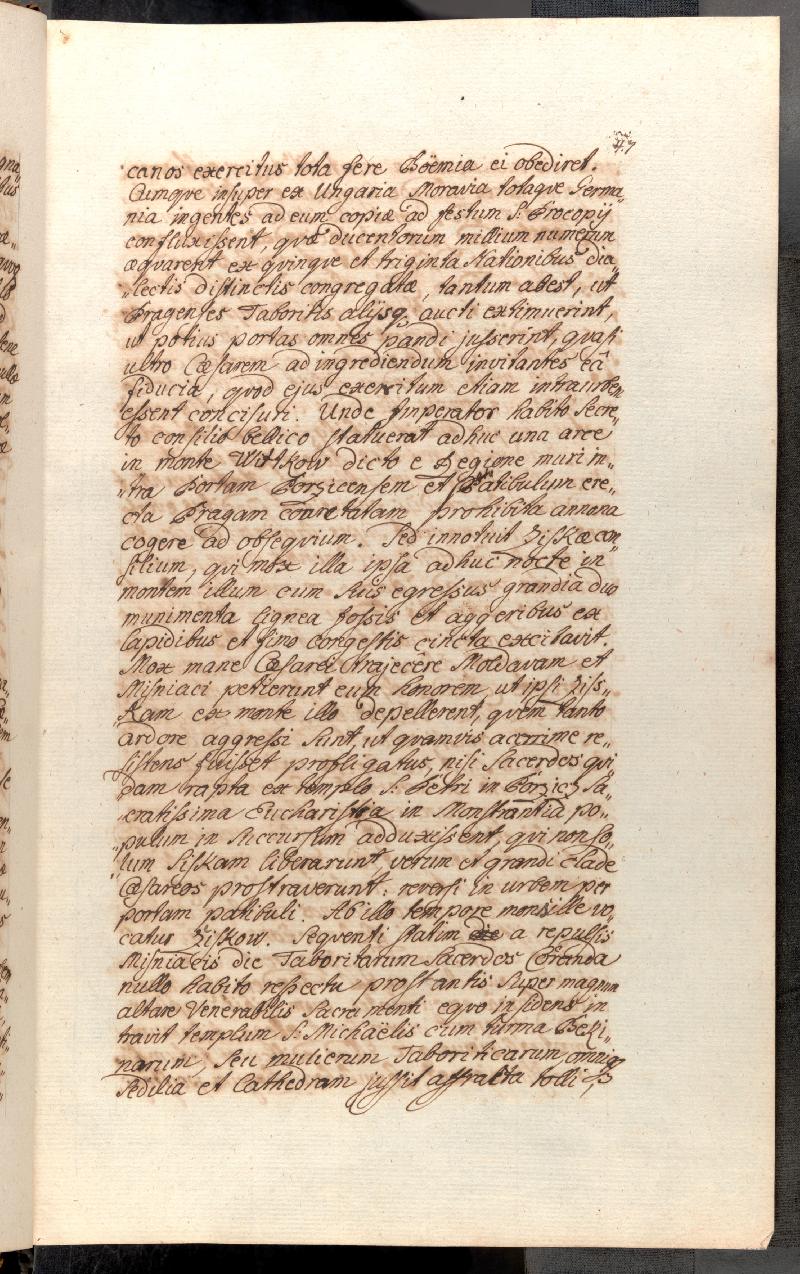 47
canos exercitus tota fere Boëmia ei obediret.
Cumque insuper ex Ungaria Moravia totaque Germa„
nia ingentes ad eum copiæ ad festum S. Procopij
confluxissent, quæ ducentorum millium numerum
æquarent ex quinque et triginta Nationibus dia„
„lectis distinctis congregatæ, tantum abest, ut
Pragenses Taboritis alijsq. aucti extimuerint,
ut potius portas omnes pandi jusserint, quasi
ultro Cæsarem ad ingrediendum invitantes eâ
fiduciâ, quod ejus exercitum etiam intra urbem
essent concisuri. Unde Imperator habito secre„
to consilio bellico statuerat adhuc una arce
in monte Wittkow dicto e Regione muri in„
„tra Portam Porzicensem et Patibulum ere„
cta Pragam prohibita annona
cogere ad obsequium. Sed innotuit Ziskæ con„
silium, qui mox illa ipsa adhuc nocte in
montem illum cum suis egressus grandia duo
munimenta lignea fossis et aggeribus ex
lapidibus et fimo congestis cincta excitavit.
Mox mane Cæsarei trajecêre Moldavam et
Misniaci petierunt eum honorem, ut ipsi Ziss„
„kam ex monte illo depellerent, quem tanto
ardore aggressi sunt, ut quamvis acerrime re„
sistens fuisset profligatus, nisi Sacerdos qui„
dam rapta ex templo S. Petri in Porzicz Sa„
„cratissima Eucharistia in Monstrantia po„
„pulum in succursum adduxissent, qui non so„
„lum Siskam liberarunt verum et grandi clade
Cæsareos prostraverunt: reversi in urbem per
portam patibuli. Ab illo tempore mons ille vo„
catur Ziskow. Sequenti statim die a repulsis
Misniacis die Taboritarum Sacerdos Coranda
nullo habito respectu prostantis super magnum
altare Venerabilis Sacramenti equo insidens in
travit templum S. Michaëlis cum turma Beki„
narum, seu mulierum Taboriticarum omnia
sedilia et Cathedram jussit affracta tolli,